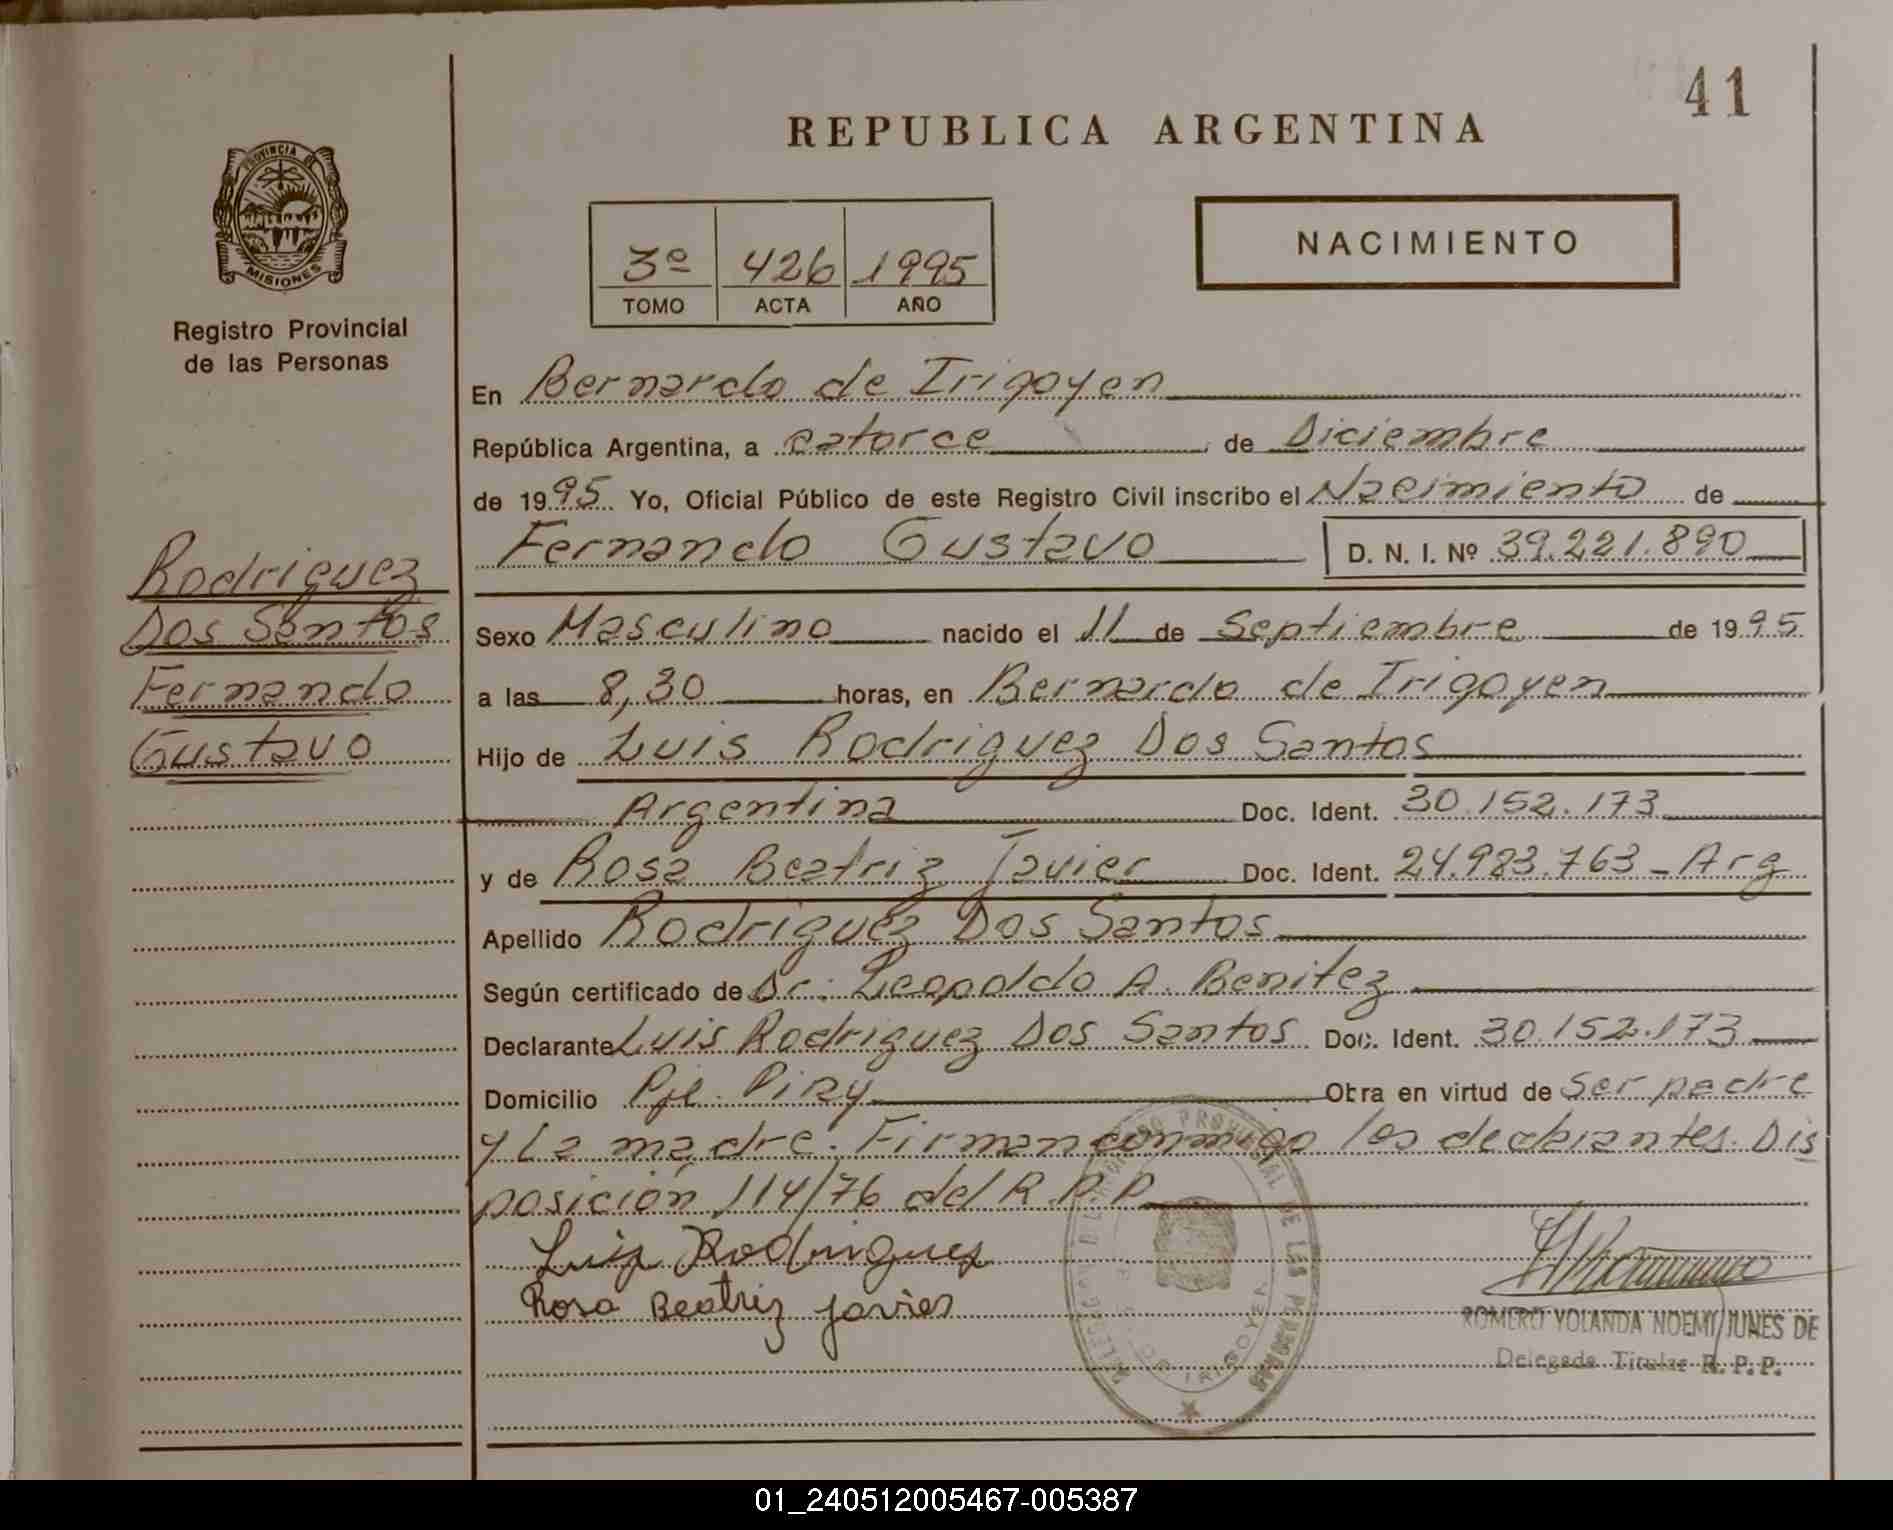 41
REPUBLICA ARGENTINA
PROVINCIA DE
MISIONES
Registro Provincial
de las Personas
3º 426 1995
TOMO ACTA AÑO
NACIMIENTO
En Bernardo de Irigoyen
República Argentina, a catorce de Diciembre
de 1995 Yo, Oficial Público de este Registro Civil inscribo el Nacimiento de
Fernando Gustavo D. N. I. Nº 39.221.890
Rodriguez
Dos Santos
Fernando
Gustavo
Sexo Masculino nacido el 11 de Septiembre de 1995
a las 8,30 horas, en Bernardo de Irigoyen
Hijo de Luis Rodriguez Dos Santos
Argentina Doc. Ident. 30.152.173
y de Rosa Beatriz Javier Doc. Ident. 24.983.763 - Arg
Apellido Rodriguez Dos Santos
Según certificado de Dr. Leopoldo A. Benitez
Declarante Luis Rodriguez Dos Santos Doc. Ident. 30.152.173
Domicilio Pje. Piray Obra en virtud de ser padre
y la madre. Firman conmigo los declarantes. Dis
posición 114/76 del R.P.P
Luis Rodrigues
Rosa Beatriz Javier
ROMERO YOLANDA NOEMI JUNES DE
Delegada Titular R. P. P.
01_240512005467-005387